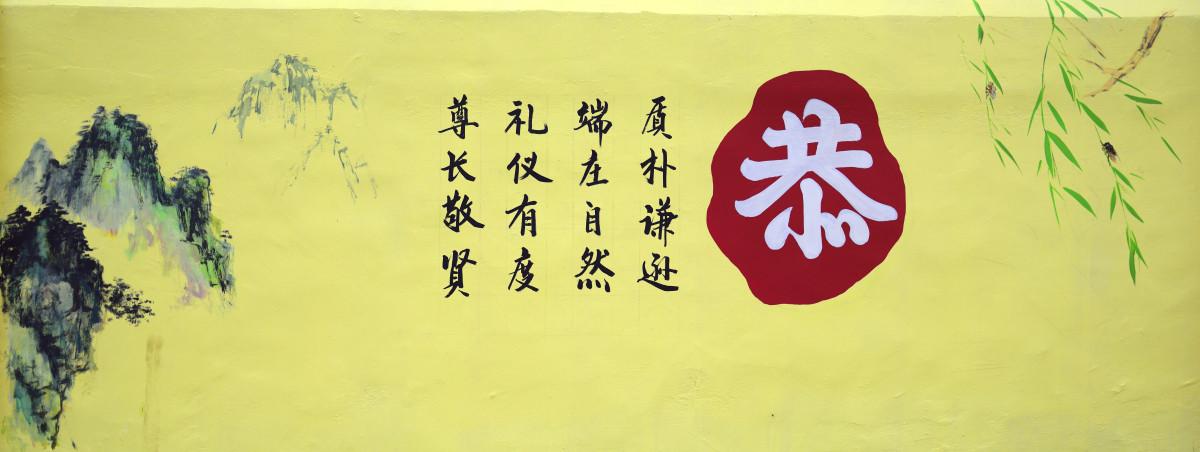 恭
质朴谦逊
端庄自然
礼仪有度
尊长敬贤